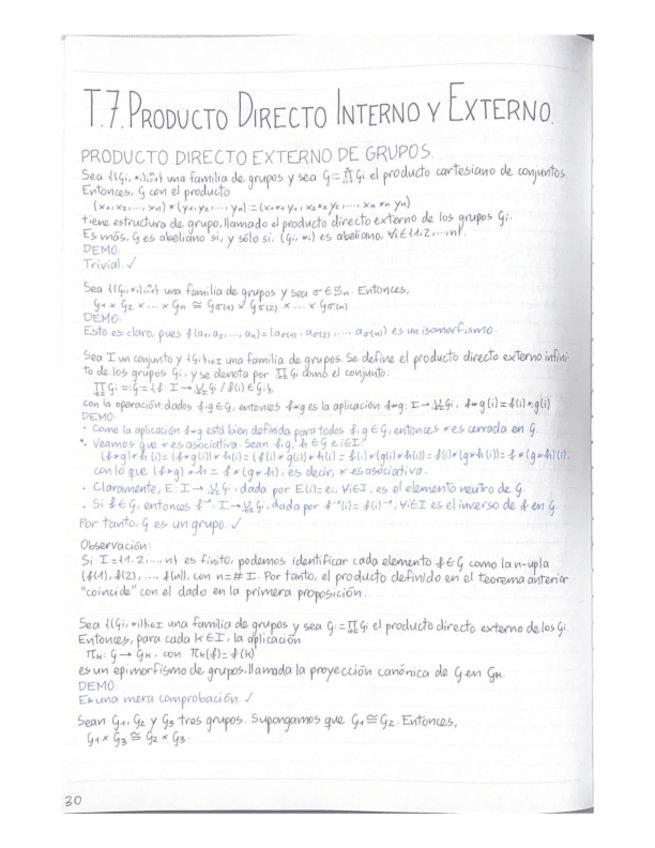 T.7. PRODUCTO DIRECTO INTERNO Y EXTERNO.
PRODUCTO DIRECTO EXTERNO DE GRUPOS.
Sea {(Gi, *i)}ⁿᵢ₌₁ una familia de grupos y sea G := ∏ⁿᵢ₌₁ Gi el producto cartesiano de conjuntos.
Entonces, G con el producto
(x₁, x₂, ..., xn) * (y₁, y₂, ..., yn) := (x₁ *₁ y₁, x₂ *₂ y₂, ..., xn *n yn)
tiene estructura de grupo, llamado el producto directo externo de los grupos Gi.
Es más, G es abeliano si, y sólo si, (Gi, *i) es abeliano, ∀i∈{1,2,...,n}.
DEMO:
Trivial. ✓
Sea {(Gi, *i)}ⁿᵢ₌₁ una familia de grupos y sea σ ∈ Sn. Entonces,
G₁ × G₂ × ... × Gn ≅ Gσ(1) × Gσ(2) × ... × Gσ(n)
DEMO:
Esto es claro, pues f(a₁, a₂, ..., an) = (aσ(1), aσ(2), ..., aσ(n)) es un isomorfismo.
Sea I un conjunto y {Gi}i∈I una familia de grupos. Se define el producto directo externo infini-
to de los grupos Gi, y se denota por ∏i∈I Gi como el conjunto:
∏i∈I Gi =: G = {f: I → ∪i∈I Gi / f(i) ∈ Gi},
con la operación: dados f, g ∈ G, entonces f*g es la aplicación f*g: I → ∪i∈I Gi, f*g(i) = f(i) *i g(i)
DEMO:
· Como la aplicación f*g está bien definida para todos f, g ∈ G, entonces * es cerrada en G.
· Veamos que * es asociativa. Sean f, g, h ∈ G e i∈I:
(f*g)*h(i) = (f*g(i)) *i h(i) = (f(i) *i g(i)) *i h(i) = f(i) *i (g(i) *i h(i)) = f(i) *i (g*h(i)) = f*(g*h)(i).
con lo que (f*g)*h = f*(g*h), es decir, * es asociativa.
· Claramente, E: I → ∪i∈I Gi, dada por E(i) = ei, ∀i∈I, es el elemento neutro de G.
· Si f∈G, entonces f⁻¹: I → ∪i∈I Gi, dada por f⁻¹(i) = f(i)⁻¹, ∀i∈I es el inverso de f en G.
Por tanto, G es un grupo. ✓
Observación:
Si I = {1, 2, ..., n} es finito, podemos identificar cada elemento f∈G como la n-upla
(f(1), f(2), ..., f(n)), con n = # I. Por tanto, el producto definido en el teorema anterior
"coincide" con el dado en la primera proposición.
Sea {(Gi, *i)}i∈I una familia de grupos y sea G := ∏i∈I Gi el producto directo externo de los Gi.
Entonces, para cada k∈I, la aplicación
πk: G → Gk, con πk(f) = f(k)
es un epimorfismo de grupos, llamada la proyección canónica de G en Gk.
DEMO:
Es una mera comprobación. ✓
Sean G₁, G₂ y G₃ tres grupos. Supongamos que G₁ ≅ G₂. Entonces,
G₁ × G₃ ≅ G₂ × G₃.
30